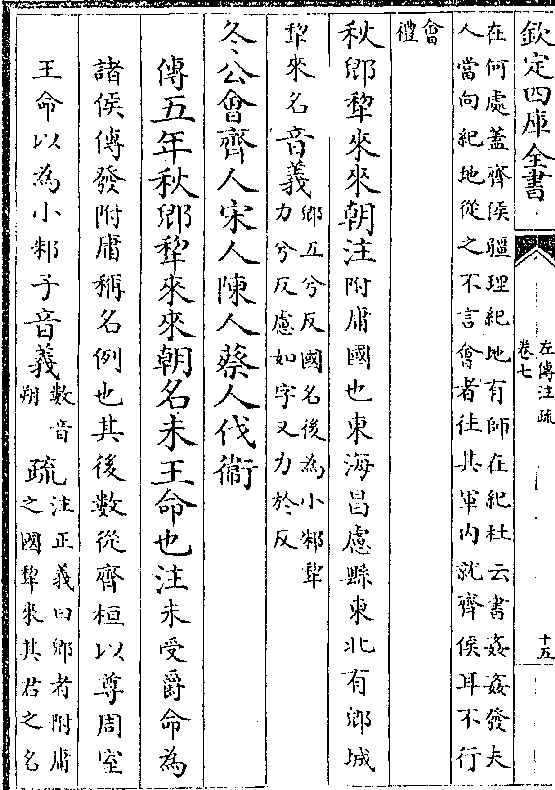 欽定四庫全書
左傳注疏
卷七
十五
在何處蓋齊侯疆理紀地有師在紀杜云書姦姦發夫
人當向紀地從之不言會者往其軍内就齊侯耳不行
會
禮
秋郳犂來來朝注附庸國也東海昌慮縣東北有郳城
犂來名音義郳五兮反國名後為小邾犂
力兮反慮如字又力於反
冬公會齊人宋人陳人蔡人伐衞
傳五年秋郳犂來來朝名未王命也注未受爵命為
諸侯傳發附庸稱名例也其後數從齊桓以尊周室
王命以為小邾子音義數音
朔
疏注正義曰郳者附庸
之國犂來其君之名